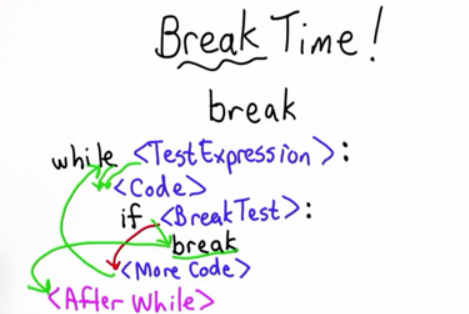 Break Time!
break
while <TestExpression>:
<Code>
if <BreakTest>:
break
<More Code>
<After While>